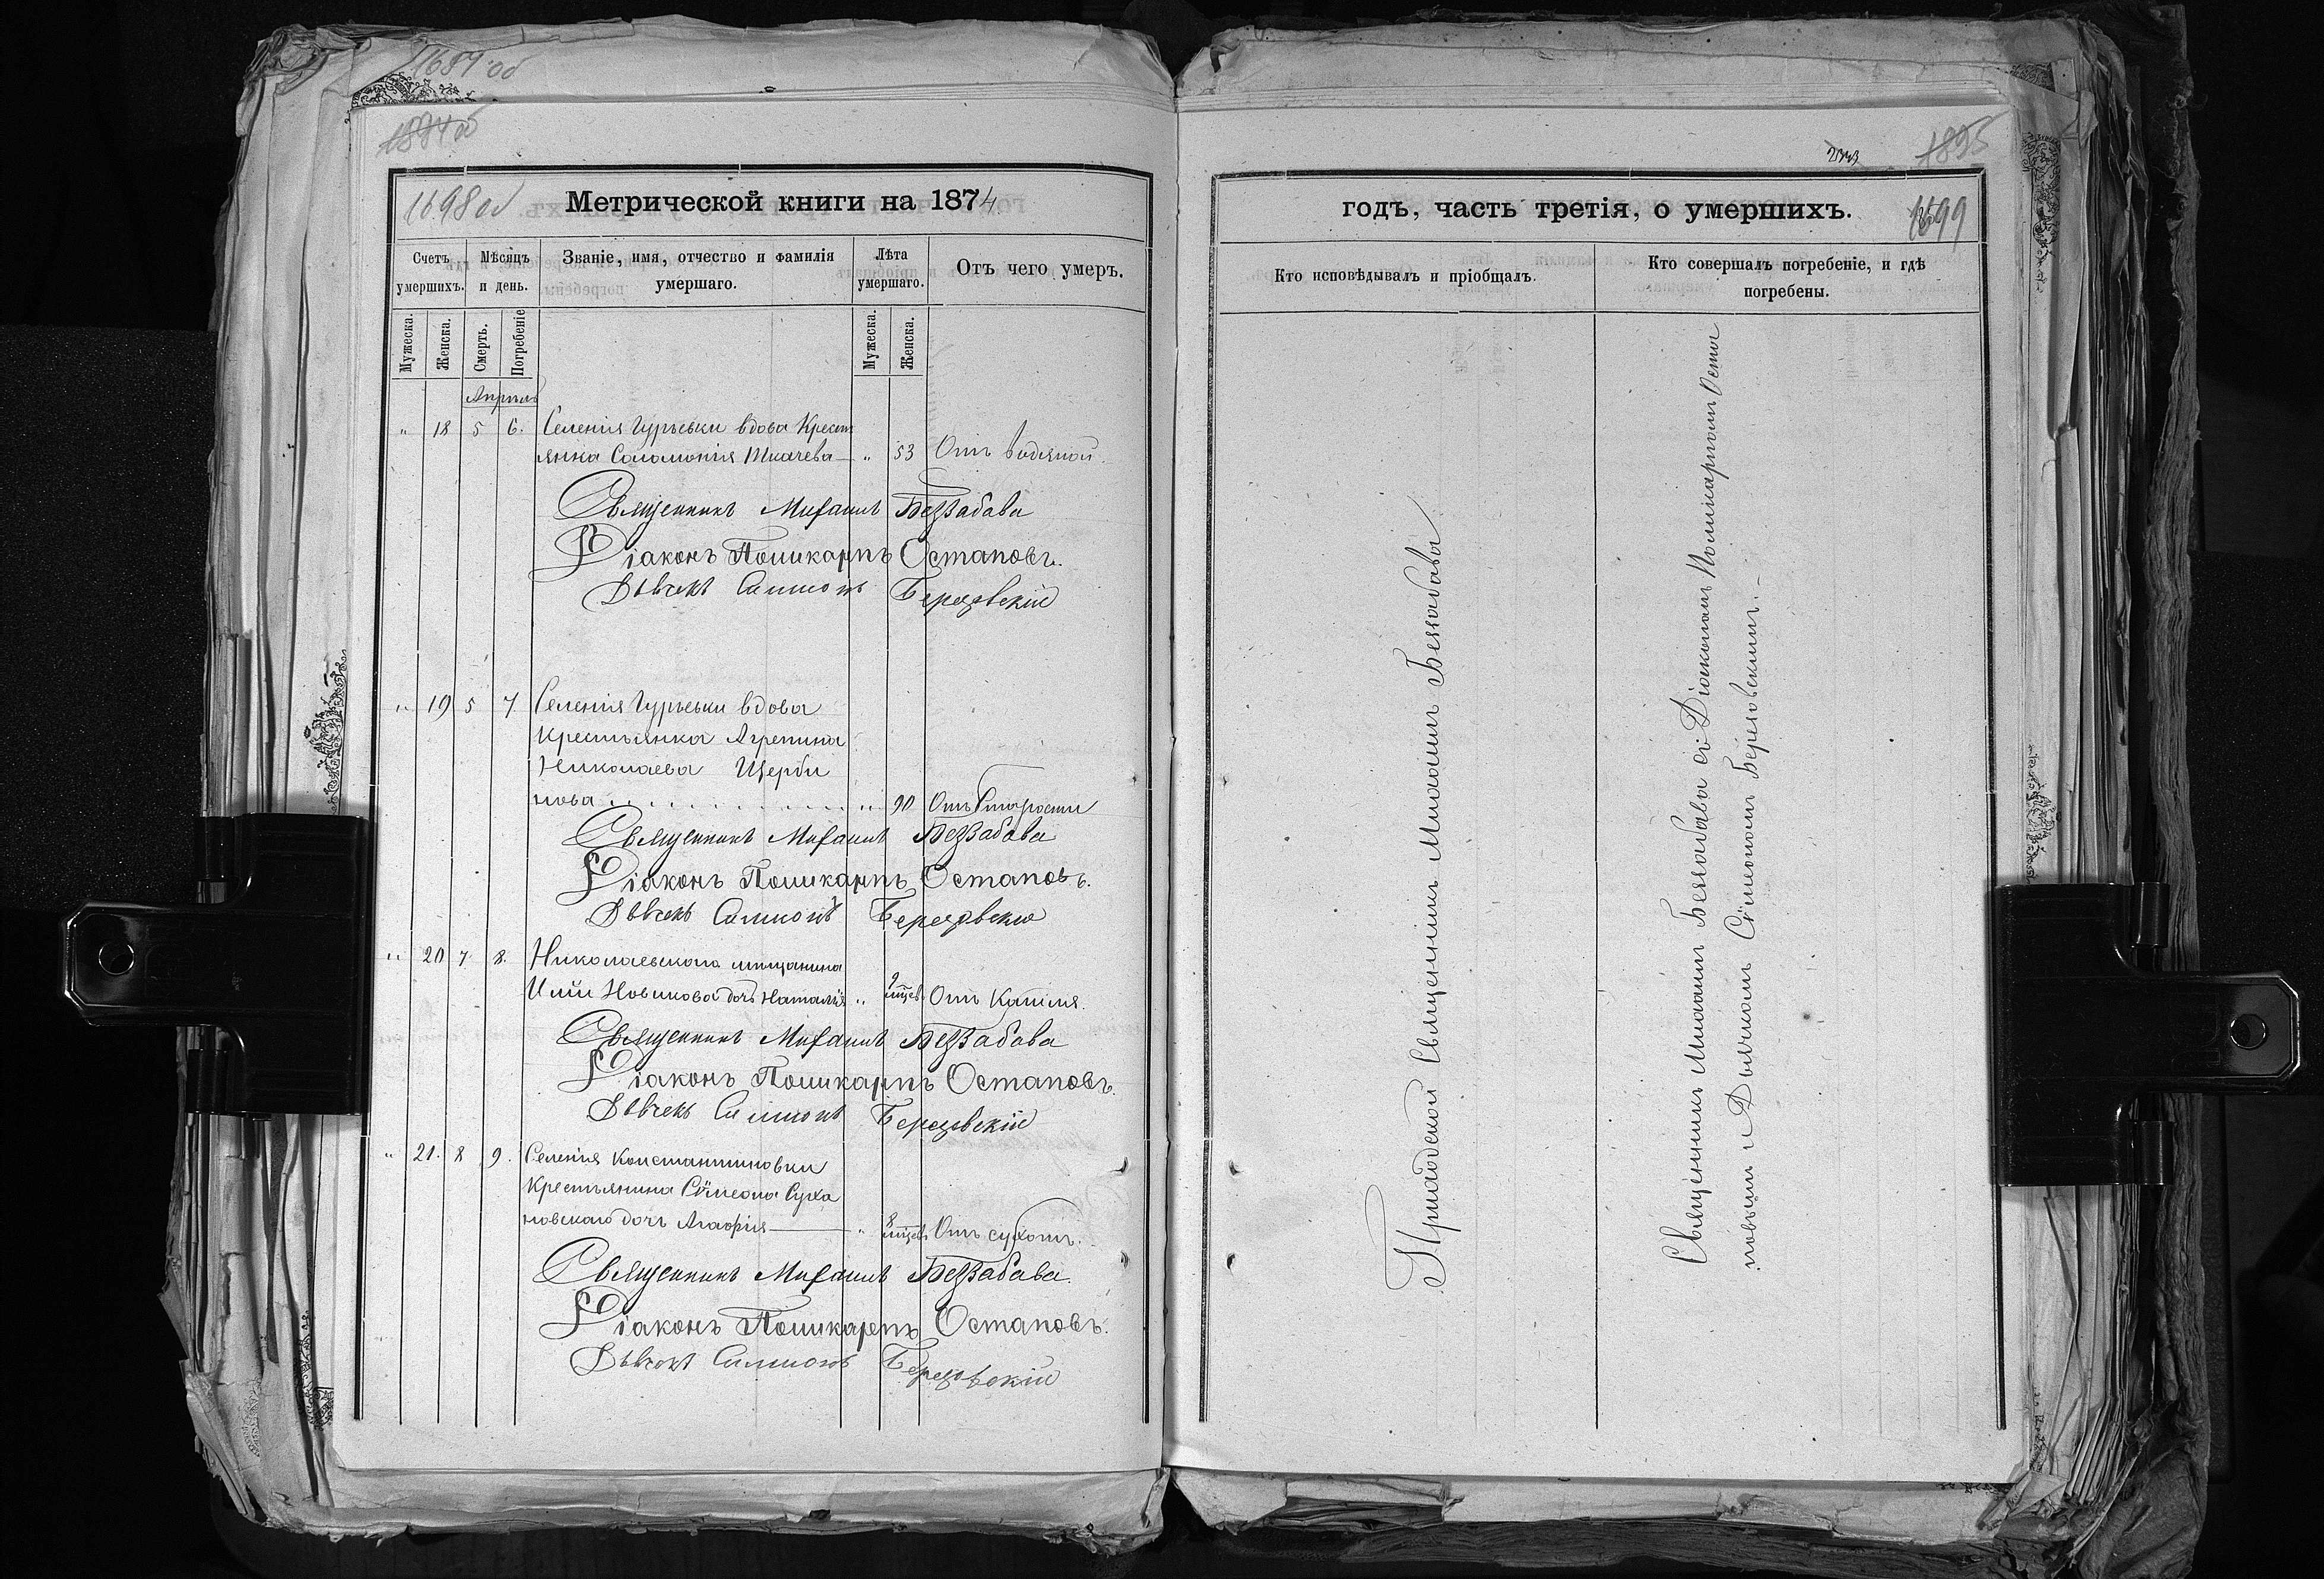 1689 об
1884 об
1698 об
Метрической книги на 1874
Счетъ умершихъ.
Мѣсяцъ и день.
Званіе, имя, отчество и фамилія умершаго.
Лѣта умершаго.
Отъ чего умеръ.
Мужеска.
Женска.
Смерть.
Погребеніе
Мужеска.
Женска.
Апрѣль
" 18 5 6. Селенія Гурьевки вдова Крест
янка Соломонія Ткачева — " 53 Отъ водяной.
Священникъ Михаилъ Беззабава
Діаконъ Поликарпъ Остаповъ.
Дьячекъ Симеонъ Березовскій
" 19 5 7 Селенія Гурьевки вдова
Крестьянка Агрепина
Николаева Щерби
нова " 90 Отъ Старости
Священникъ Михаилъ Беззабава
Діаконъ Поликарпъ Остаповъ.
Дьячекъ Симеонъ Березовскій
" 20 7 8. Николаевскаго мѣщанина
Иліи Новикова дочь Наталія " 9 мѣсяц. Отъ Кашля.
Священникъ Михаилъ Беззабава
Діаконъ Поликарпъ Остаповъ.
Дьячекъ Симеонъ Березовскій
" 21. 8 9. Селенія Константиновки
Крестьянина Сѵмеона Суха
новскаго дочь Агафія — " 8 мѣсяц. Отъ сухотъ.
Священникъ Михаилъ Беззабава.
Діаконъ Поликарпъ Остаповъ.
Дьячекъ Симеонъ Березовскій
1895
годъ, часть третія, о умершихъ.
1699
Кто исповѣдывалъ и пріобщалъ.
Кто совершалъ погребеніе, и гдѣ
погребены.
Приходской Священникъ Михаилъ Беззабава
Священникъ Михаилъ Беззабава съ Діакономъ Поликарпомъ Оста
повымъ и Дьячкомъ Сѵмеономъ Березовскимъ.